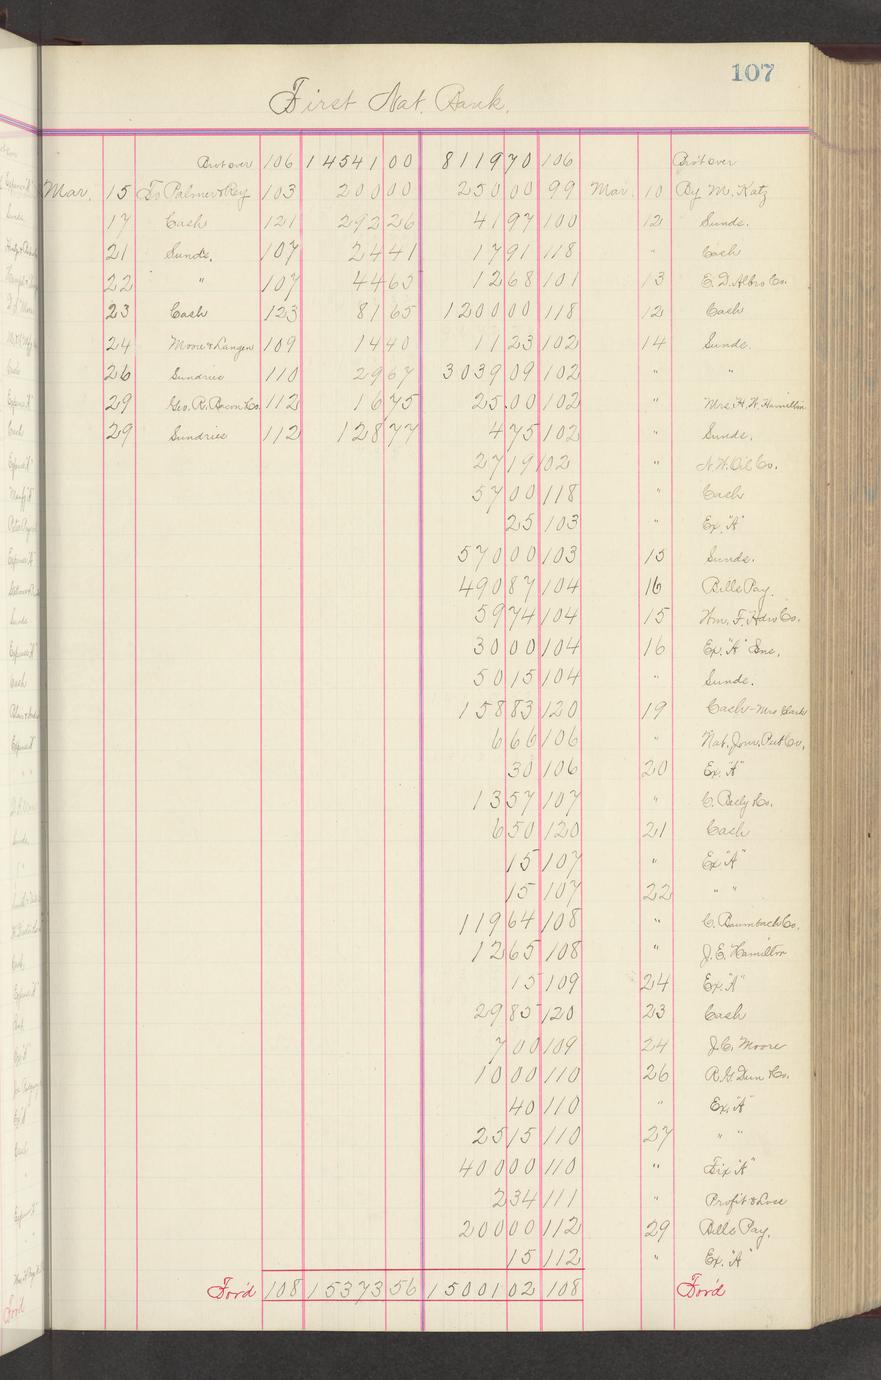 107
First Nat. Bank.
Brot over 106 14541 00 8119 70 106 Brot over
Mar. 15 To Palmer & Rey 103 200 00 250 00 99 Mar. 10 By M. Katz
17 Cash 121 292 26 41 97 100 12 Sunds.
21 Sunds. 107 24 41 17 91 118 " Cash
22 " 107 44 63 12 68 101 13 E. D. Albro Co.
23 Cash 123 81 65 1200 00 118 12 Cash
24 Moore & Langen 109 14 40 11 23 102 14 Sunds.
26 Sundries 110 29 67 3039 09 102 " "
29 Geo. R. Bacon & Co. 112 16 75 25.00 102 " Mrs. H. W. Hamilton
29 Sundries 112 128 77 4 75 102 " Sunds.
27 19 102 " N. W. Oil Co.
57 00 118 " Cash
25 103 " Ex. "A"
570 00 103 15 Sunds.
490 87 104 16 Bills Pay.
59 74 104 15 Wm. F. Hdw Co.
30 00 104 16 Ex. "A"
50 15 104 " Sunds.
158 83 120 19 Cash - Mrs Clark
6 66 106 " Nat. Jour. Pub Co.
30 106 20 Ex. "A"
13 57 107 " C. Co.
6 50 120 21 Cash
15 107 " Ex "A"
15 107 22 " "
119 64 108 " C. Baumbach Co.
12 65 108 " J. E. Hamilton
15 109 24 Ex. "A"
29 85 120 23 Cash
7 00 109 24 J. C. Moore
10 00 110 26 R. G. Dun & Co.
40 110 " Ex. "A"
25 15 110 27 " "
400 00 110 " Fix "A"
2 34 111 " Profit & Loss
200 00 112 29 Bills Pay.
15 112 " Ex. "A"
For'd 108 15373 56 15001 02 108 For'd